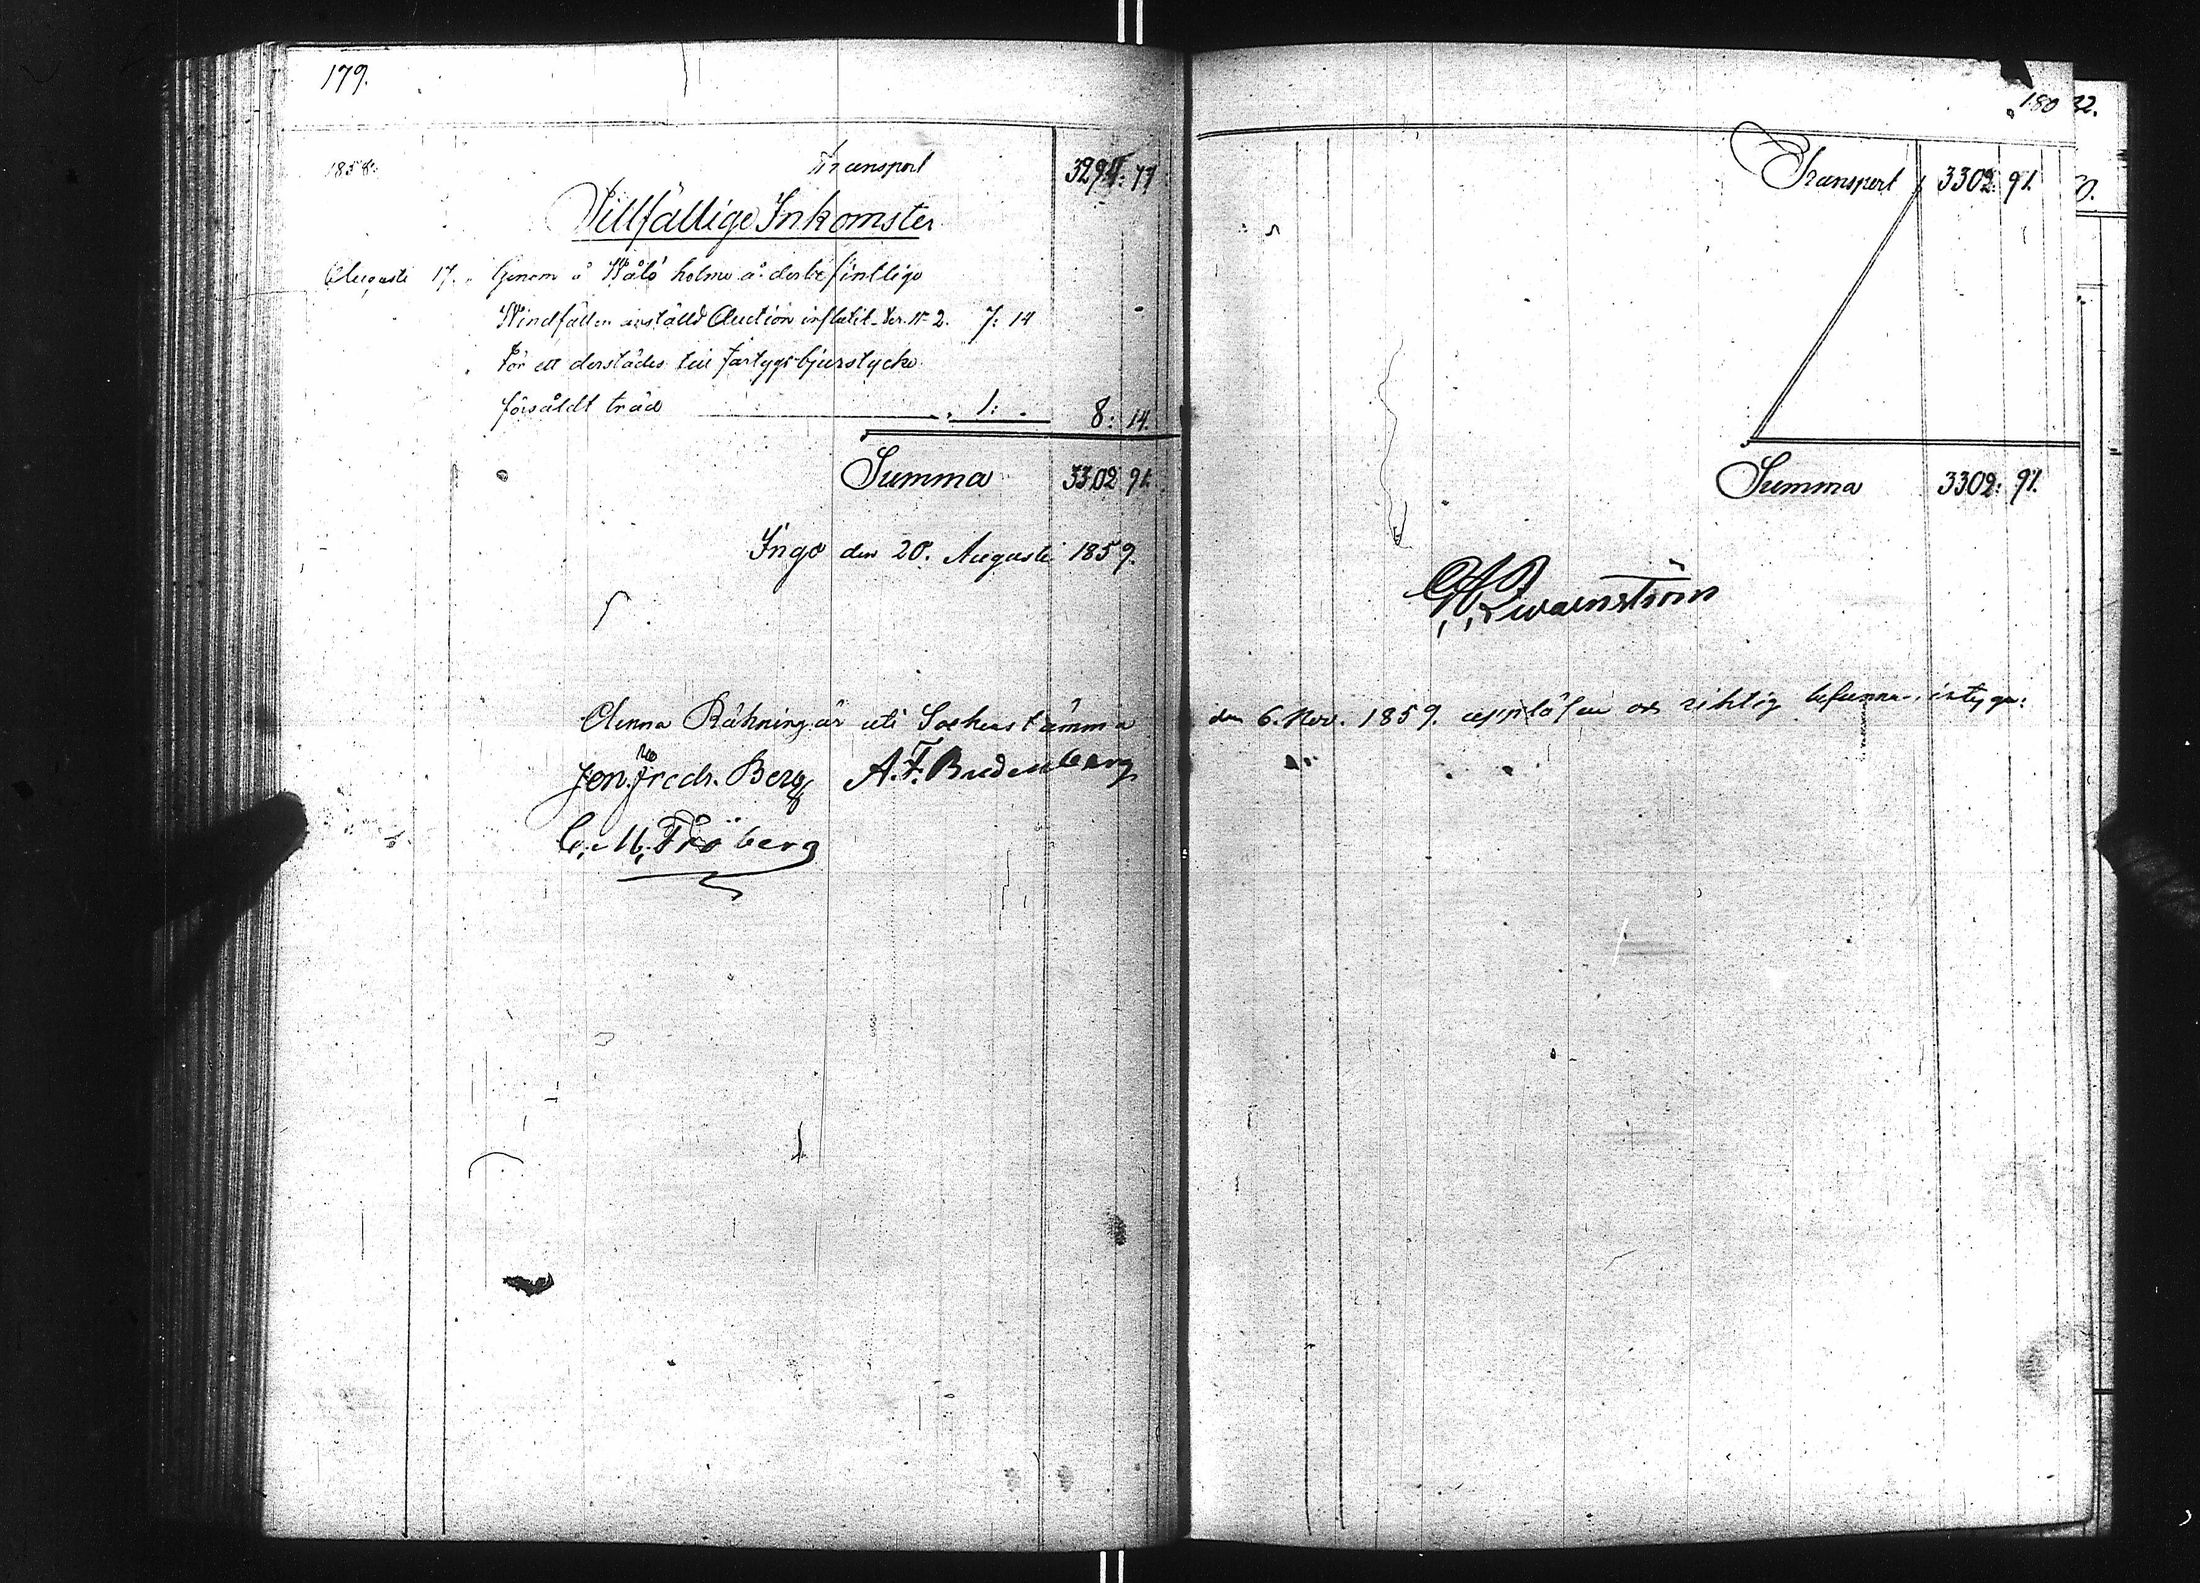 179.
1858. Transport 3294: 77
Tillfällige Inkomster
Augusti 17. Genom å Wålö holme å derbefintlige
Windfällen anställd Auction influtit Ver. N 2. 7: 14
För ett derstädes till fartygs bjurstycke
försåldt träd 1: 8: 14.
Summa 3302 91.
Ingo den 20. Augusti 1859.
Denna Räkning är uti Sockenstämma
Jon. Fredr. Berg A. F. Brudenberg
C. M. Fröberg
180 32.
Transport 3302: 91.
Summa 3302: 91.
Qwarnström
den 6. Nov. 1859. uppläsen och riktig befunnen, intyga: